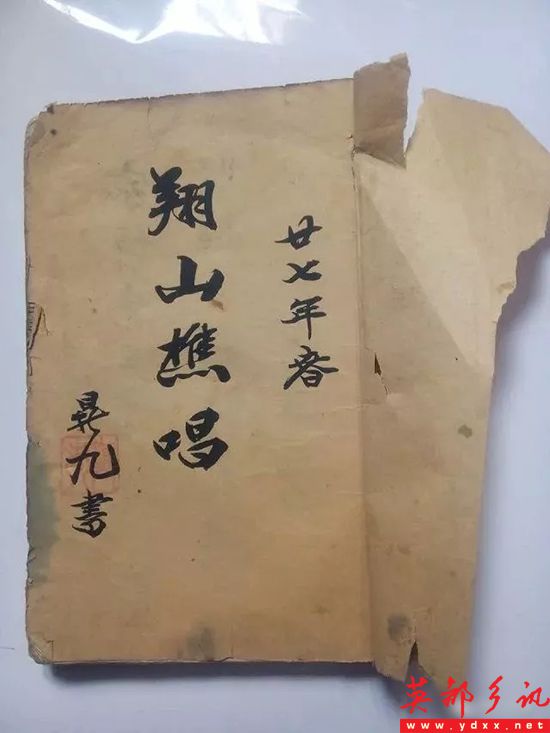 廿七年春
翔山樵唱
晃九書
英都乡讯
www.ydxx.net